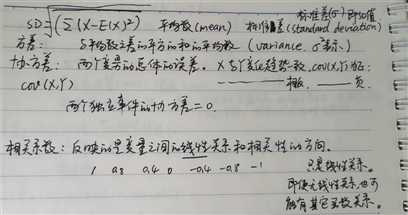 标准差(σ)
SD=√(Σ(X-E(X)²) 平均数(mean) 标准差(standard deviation)
方差: 与平均数之差的平方的和的平均数 (variance, σ²表示)
协方差: 两个变量的总体的误差。X与Y变化趋势一致, cov(X,Y)为正;
cov(X,Y) 相反, 负。
两个独立事件的协方差=0.
相关系数: 反映的是变量之间的线性关系和相关性的方向。
1 0.8 0.4 0 -0.4 -0.8 -1
只是线性关系。
即使无线性关系, 也可
能有其它函数关系。